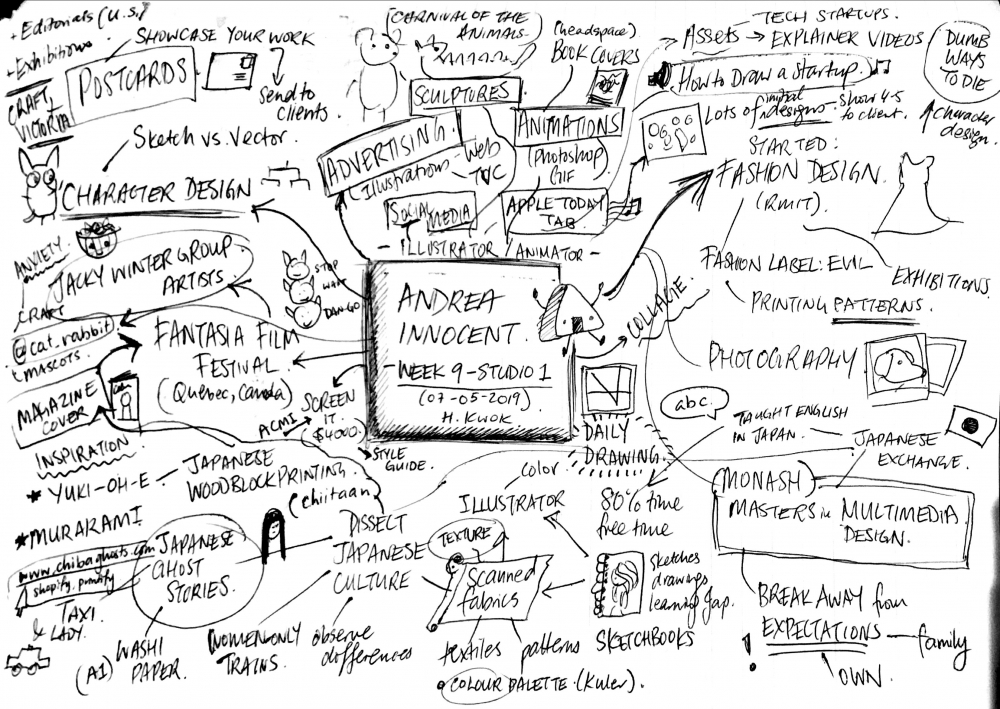 Editorials (U.S.)
Exhibitions
CRAFT,
VICTORIA
SHOWCASE YOUR WORK
POSTCARDS
Send to
clients.
Sketch vs. Vector.
CHARACTER DESIGN
CARNIVAL OF THE
ANIMALS
SCULPTURES
(headspace)
BOOK COVERS
ANIMATIONS
(photoshop)
GIF
ADVERTISING
(Illustrations - Web
TVC
SOCIAL MEDIA
APPLE TODAY
TAB
- ILLUSTRATOR / ANIMATOR -
Assets → EXPLAINER VIDEOS
TECH STARTUPS.
How to Draw a Startup.
Lots of initial designs - Show 4-5
to client.
DUMB
WAYS
TO DIE
Character
design.
STARTED:
FASHION DESIGN.
(RMIT).
FASHION LABEL: EVIL
EXHIBITIONS.
PRINTING PATTERNS.
COLLAGE
PHOTOGRAPHY
ANXIETY.
JACKY WINTER GROUP
ARTISTS
CRAFT
@cat.rabbit
MASCOTS.
STOP
WAIT
DAN-GO
FANTASIA FILM
FESTIVAL
(Quebec, Canada)
MAGAZINE
COVER
INSPIRATION
ACMI
SCREEN
IT
$4000.
STYLE
GUIDE.
ANDREA
INNOCENT.
- WEEK 9 - STUDIO 1
(07-05-2019)
H. KWOK
DAILY
DRAWING
abc.
TAUGHT ENGLISH
IN JAPAN.
JAPANESE
EXCHANGE.
MONASH
MASTERS in MULTIMEDIA
DESIGN.
BREAK AWAY from
EXPECTATIONS - family
OWN.
* YUKI-OH-E - JAPANESE
WOODBLOCK PRINTING.
(chiitaan)
* MURAKAMI
www.chibaghosts.com
shopify.printify
TAXI
& LADY.
JAPANESE
GHOST
STORIES.
WASHI
PAPER.
(A1)
DISSECT
JAPANESE
CULTURE
WOMEN-ONLY
TRAINS.
observe
differences
color
ILLUSTRATOR
TEXTURE
Scanned
fabrics
textiles
patterns
COLOUR PALETTE. (Kuler).
80% time
free time
sketches
drawings
learning Jap.
SKETCHBOOKS